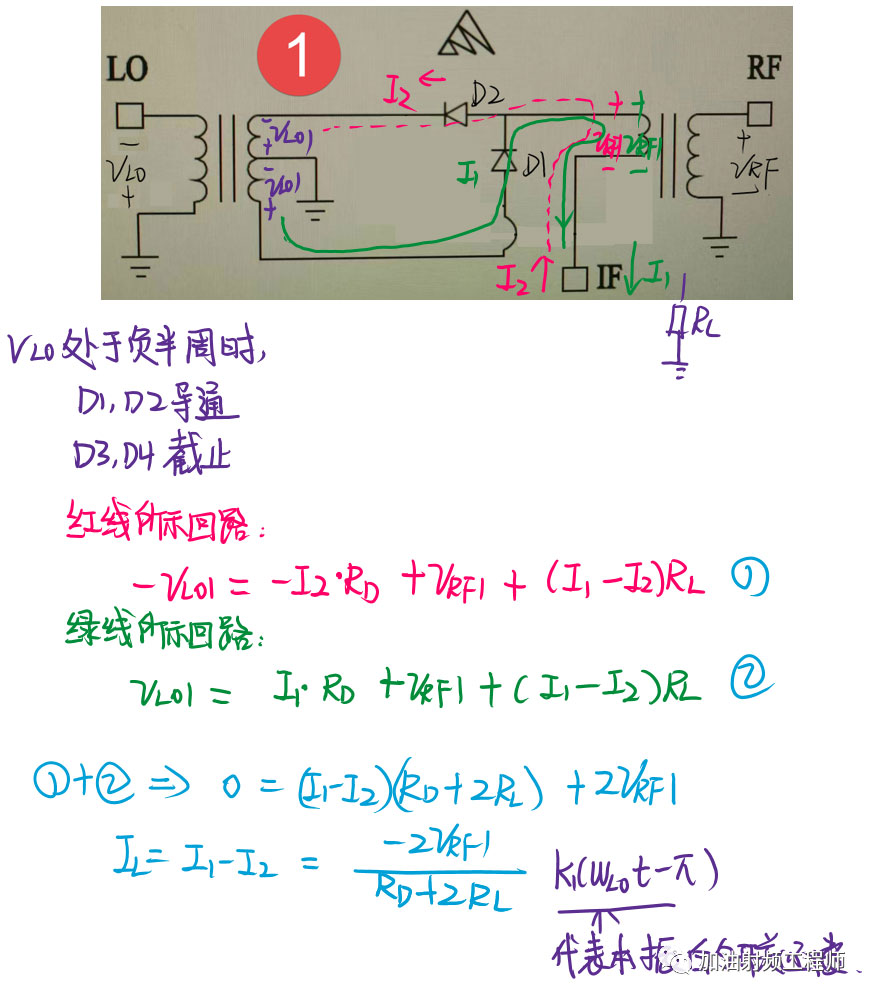 1
LO
RF
I2 ←
D2
- VLO1 +
- VLO1 +
+ VRF1 -
+ VRF1 -
- VLO +
+ VRF -
I1
D1
I2 ↑
IF
↓ I1
RL
VLO处于负半周时,
D1, D2导通
D3, D4截止
红线所示回路:
-VLO1 = -I2·RD + VRF1 + (I1-I2)RL ①
绿线所示回路:
VLO1 = I1·RD + VRF1 + (I1-I2)RL ②
①+② ⇒ 0 = (I1-I2)(RD+2RL) + 2VRF1
IL = I1-I2 = -2VRF1 / (RD+2RL) K1(WLOt-π)
代表本振的开关
加油射频工程师